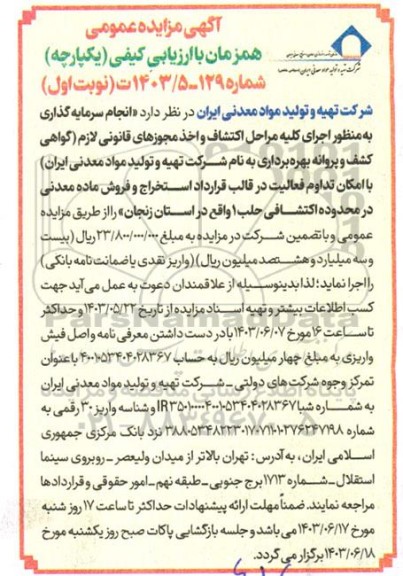 آگهی مزایده عمومی
همزمان با ارزیابی کیفی (یکپارچه)
شماره ۱۲۹-۱۴۰۳/۵ت (نوبت اول)
شرکت تهیه و تولید مواد معدنی ایران در نظر دارد «انجام سرمایه گذاری
به منظور اجرای کلیه مراحل اکتشاف و اخذ مجوزهای قانونی لازم (گواهی
کشف و پروانه بهره برداری به نام شرکت تهیه و تولید مواد معدنی ایران)
با امکان تداوم فعالیت در قالب قرارداد استخراج و فروش ماده معدنی
در محدوده اکتشافی حلب ۱ واقع در استان زنجان» را از طریق مزایده
عمومی و با تضمین شرکت در مزایده به مبلغ ۲۳/۸۰۰/۰۰۰/۰۰۰ ریال (بیست
و سه میلیارد و هشتصد میلیون ریال) (واریز نقدی یا ضمانت نامه بانکی)
را اجرا نماید؛ لذا بدینوسیله از علاقمندان دعوت به عمل می آید جهت
کسب اطلاعات بیشتر و تهیه اسناد مزایده از تاریخ ۱۴۰۳/۰۵/۲۲ و حداکثر
تا ساعت ۱۶ مورخ ۱۴۰۳/۰۶/۰۷ با در دست داشتن معرفی نامه و اصل فیش
واریزی به مبلغ چهار میلیون ریال به حساب ۴۰۰۱۰۵۳۴۰۴۰۲۸۳۶۷ با عنوان
تمرکز وجوه شرکت های دولتی - شرکت تهیه و تولید مواد معدنی ایران
به شماره شبا و شناسه واریز ۳۰ رقمی به
شماره نزد بانک مرکزی جمهوری
اسلامی ایران، به آدرس: تهران بالاتر از میدان ولیعصر - روبروی سینما
استقلال - شماره ۱۷۱۳ برج جنوبی - طبقه نهم - امور حقوقی و قراردادها
مراجعه نمایند. ضمناً مهلت ارائه پیشنهادات حداکثر تا ساعت ۱۷ روز شنبه
مورخ ۱۴۰۳/۰۶/۱۷ می باشد و جلسه بازگشایی پاکات صبح روز یکشنبه مورخ
۱۴۰۳/۰۶/۱۸ برگزار می گردد.